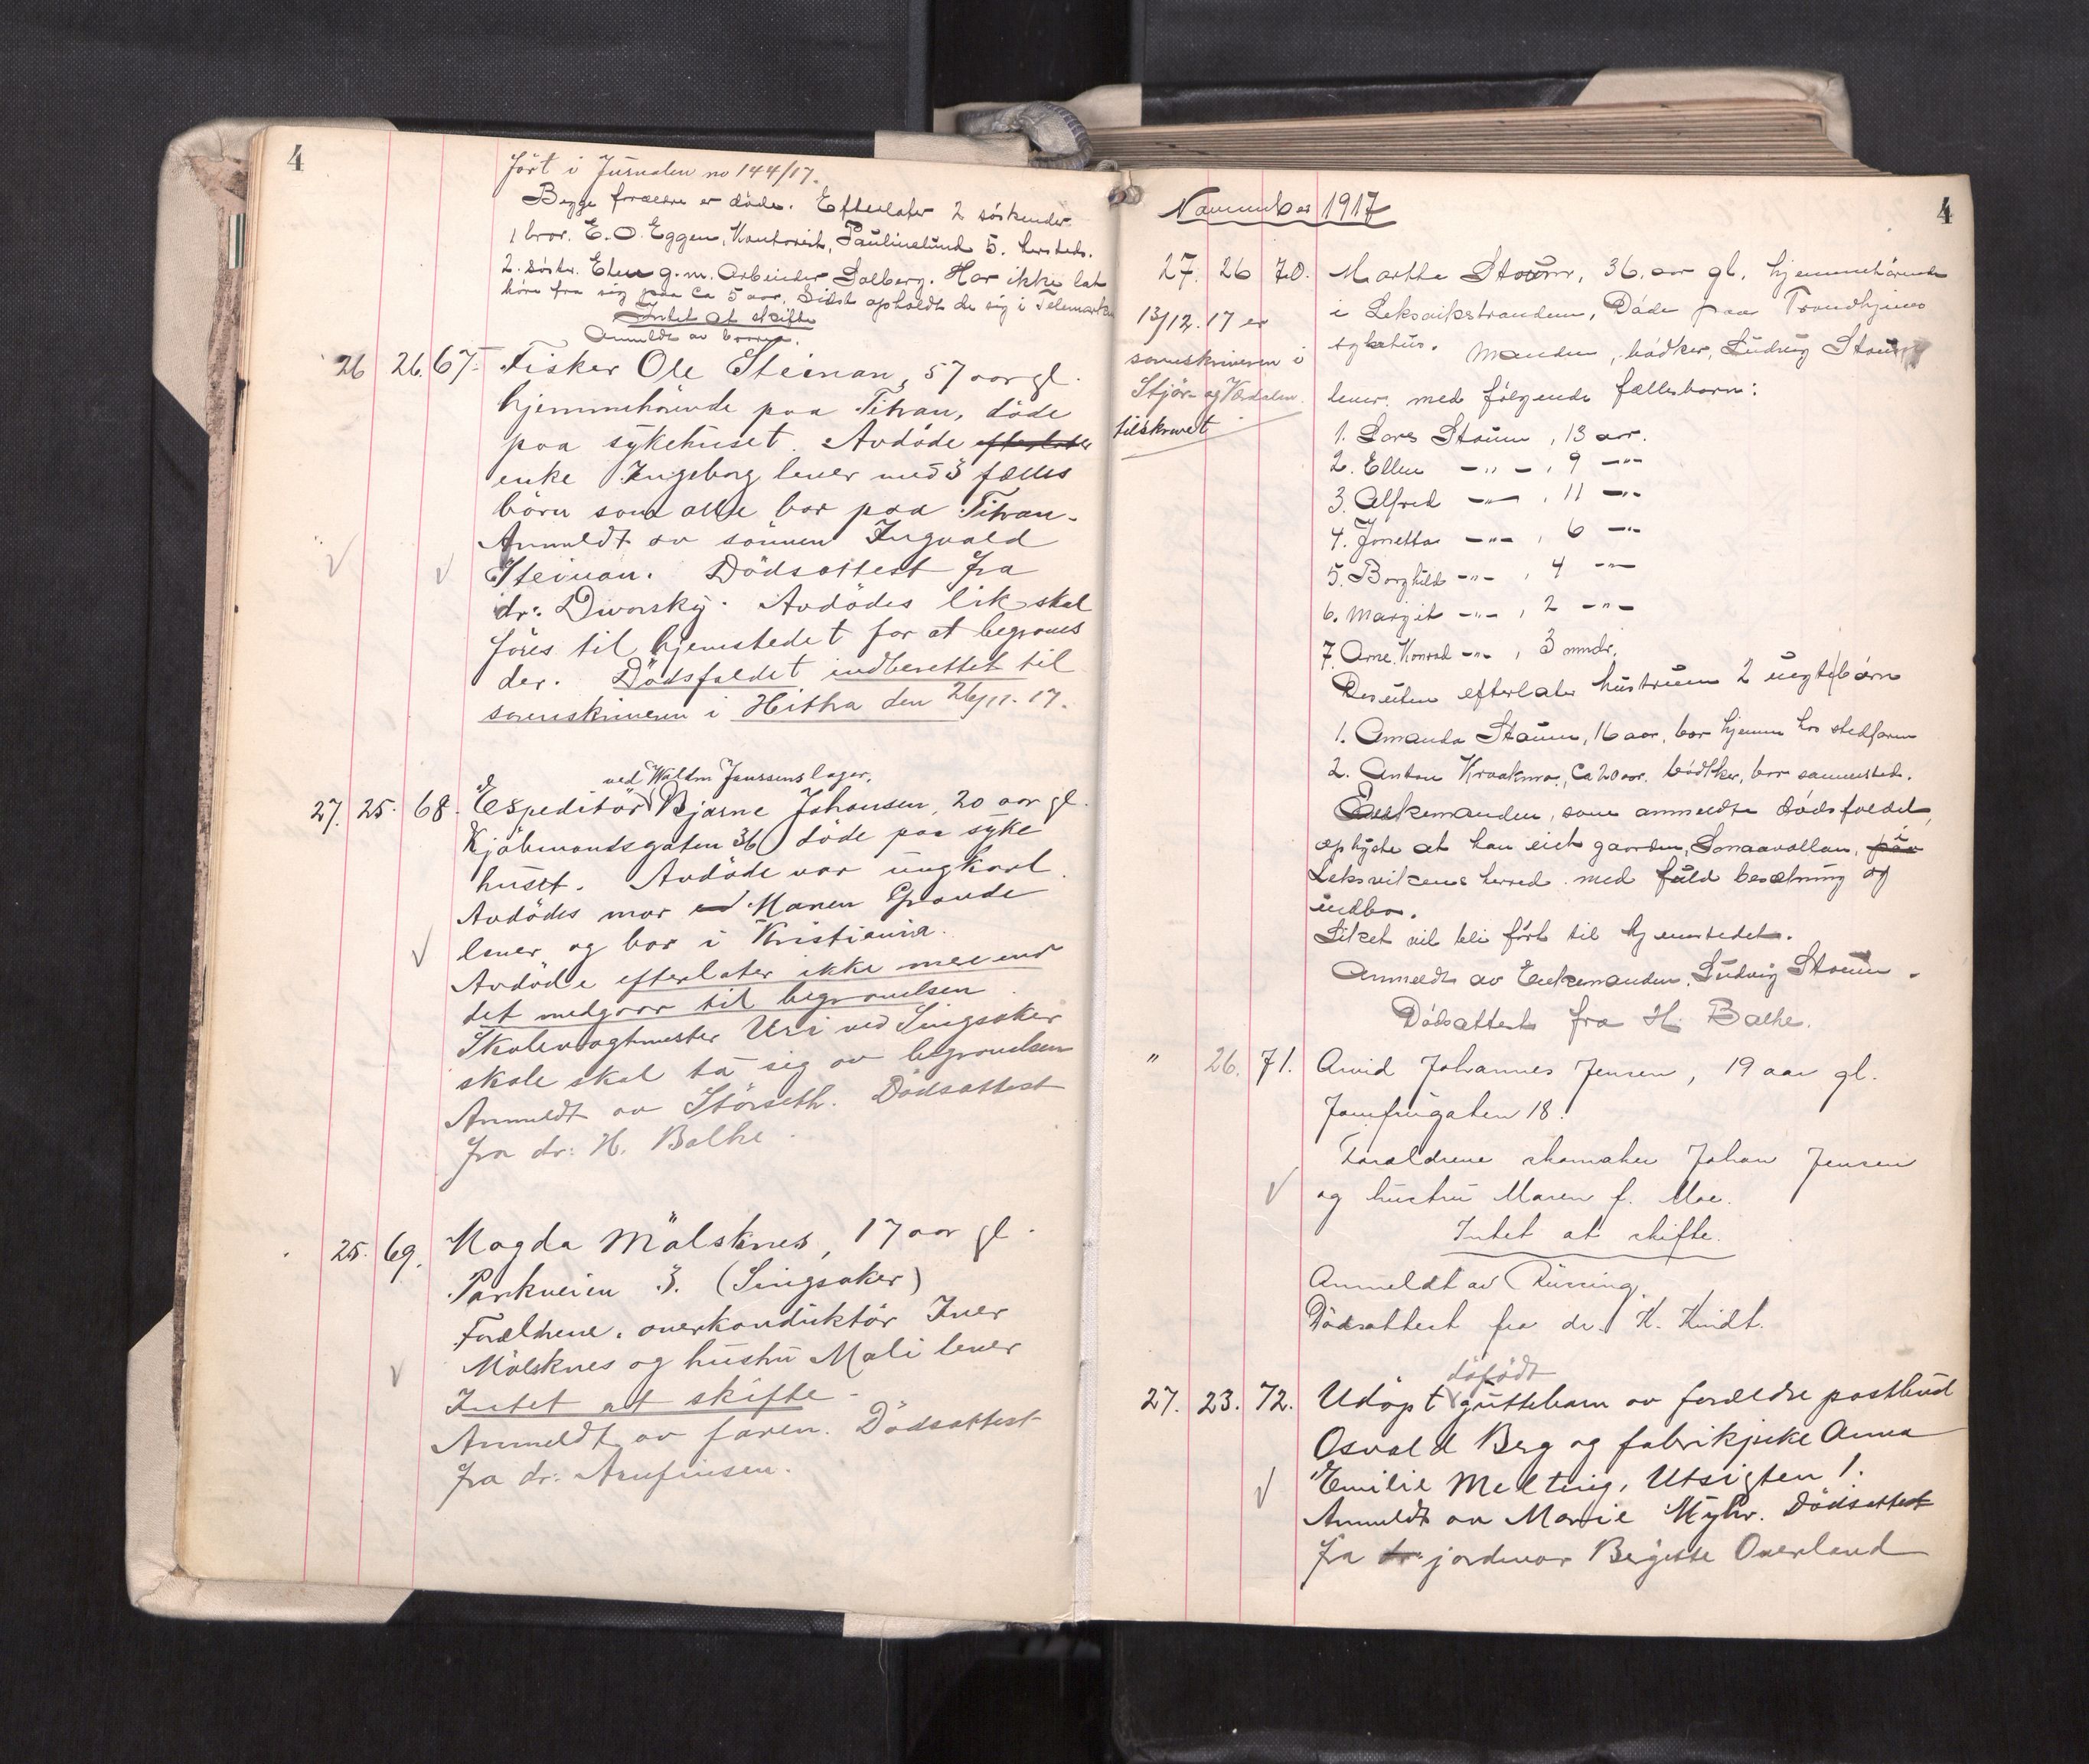 4
ført i Jurnalen no 144/17.
Begge forældre er døde. Efterlater 2 søskender
1 bror. E. O. Eggen, Kontorist, Paulinelund 5. hersteds.
2. søster. Elen g.m. Arbeider Solberg. Har ikke lat
høre fra sig paa ca 5 aar. Sidst opholdt de sig i Telemarken
Intet at skifte
Anmeldt av broren.
26 26. 67. Fisker Ole Steinan, 57 aar gl.
hjemmehørende paa Titran, døde
paa sykehuset. Avdøde efterlater
enke Ingeborg lever med 3 fælles
børn som alle bor paa Titran.
Anmeldt av sønnen Ingvald
Steinan. Dødsattest fra
dr: Dworsky. Avdødes lik skal
føres til hjemstedet for at begraves
der. Dødsfaldet indberettet til
sorenskriveren i Hitra den 26/11. 17.
ved Waldm Janssens lager.
27. 25. 68. Espeditør Bjarne Johansen, 20 aar gl.
Kjøbmandsgaten 36 døde paa syke
huset. Avdøde var ungkarl.
Avdødes mor Maren Grande
lever og bor i Kristiania.
Avdøde efterlater ikke mer end
det medgaar til begravelsen.
Skolevagtmester Uri ved Singsaker
skole skal ta sig av begravelsen
Anmeldt av Størseth. Dødsattest
fra dr: H. Balke.
25. 69. Magda Mølsknes, 17 aar gl.
Parkveien 3. (Singsaker)
Forældrene, overkonduktør Iver
Mølsknes og hustru Mali lever
Intet at skifte.
Anmeldt av faren. Dødsattest
fra dr: Arnfinsen.
4
November 1917
27. 26 70. Martha Staum, 36. aar gl. hjemmehørende
i Leksvikstranden, Døde paa Trondhjems
sykehus. Manden, bødker, Ludvig Staum
lever med følgende fællesbarn:
13/12. 17 er
sorenskriveren i
Stjør- og Værdalen
tilskrevet
1. Lars Staum, 13 aar.
2. Ellen -"- , 9 -"-
3. Alfred -"- , 11 -"-
4. Jonetta -"- , 6 -"-
5. Borghild -"- , 4 -"-
6. Margit -"- , 2 -"-
7. Arne Konrad -"- , 3 mndr.
Desuten efterlater hustruen 2 uegte børn
1. Amanda Staum, 16 aar, bor hjemme hos stedfaren
2. Anton Kraakmo, ca 20 aar. bødtker, bor sammesteds.
Enkemanden, som anmeldte dødsfaldet,
oplyste at han eiet gaarden, Sonaavollan, paa i
Leksvikens herred med fuld besætning og
indbo.
Liket vil bli ført til hjemstedet.
Anmeldt av Enkemanden, Ludvig Staum.
Dødsattest fra H. Balke.
" 26. 71. Arvid Johannes Jensen, 19 aar gl.
Jomfrugaten 18.
Foraldrene skomaker Johan Jensen
og hustru Maren f. Moe.
Intet at skifte.
Anmeldt av
Dødsattest fra dr. K. Kindt.
døfødt
27. 23. 72. Udøpt guttebarn av forældre postbud
Osvald Berg og fabrikpike Anna
Emilie Melting, Utsigten 1.
Anmeldt av Marie Myhr. Dødsattest
fra dr. jordmor Bergitte Overland